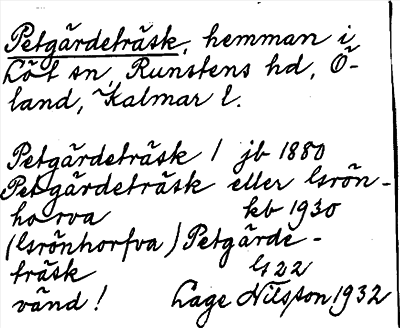 Petgärdeträsk, hemman i
Löt sn, Runstens hd, Ö-
land, Kalmar l.
Petgärdeträsk 1 jb 1880
Petgärdeträsk eller Grön-
horva kb 1930
(Grönhorfva) Petgärde-
träsk G 22
vänd! Lage Nilsson 1932